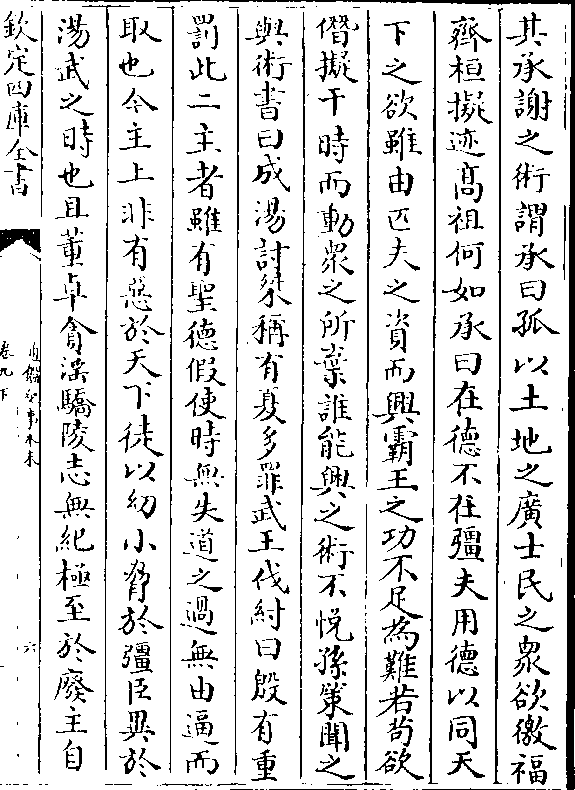 其承謝之術謂承曰孤以土地之廣士民之衆欲徼福
齊桓擬迹髙祖何如承曰在德不在彊夫用德以同天
下之欲雖由匹夫之資而興霸王之功不足為難若茍欲
僭擬干時而動衆之所棄誰能興之術不悦孫策聞之
與術書曰成湯討桀稱有夏多罪武王伐紂曰殷有重
罰此二主者雖有聖德假使時無失道之過無由逼而
取也今主上非有惡於天下徒以幼小脅於彊臣異於
湯武之時也且董卓貪淫驕陵志無紀極至於廢主自
欽定四庫全書
通鑑紀事本末
卷九下
六